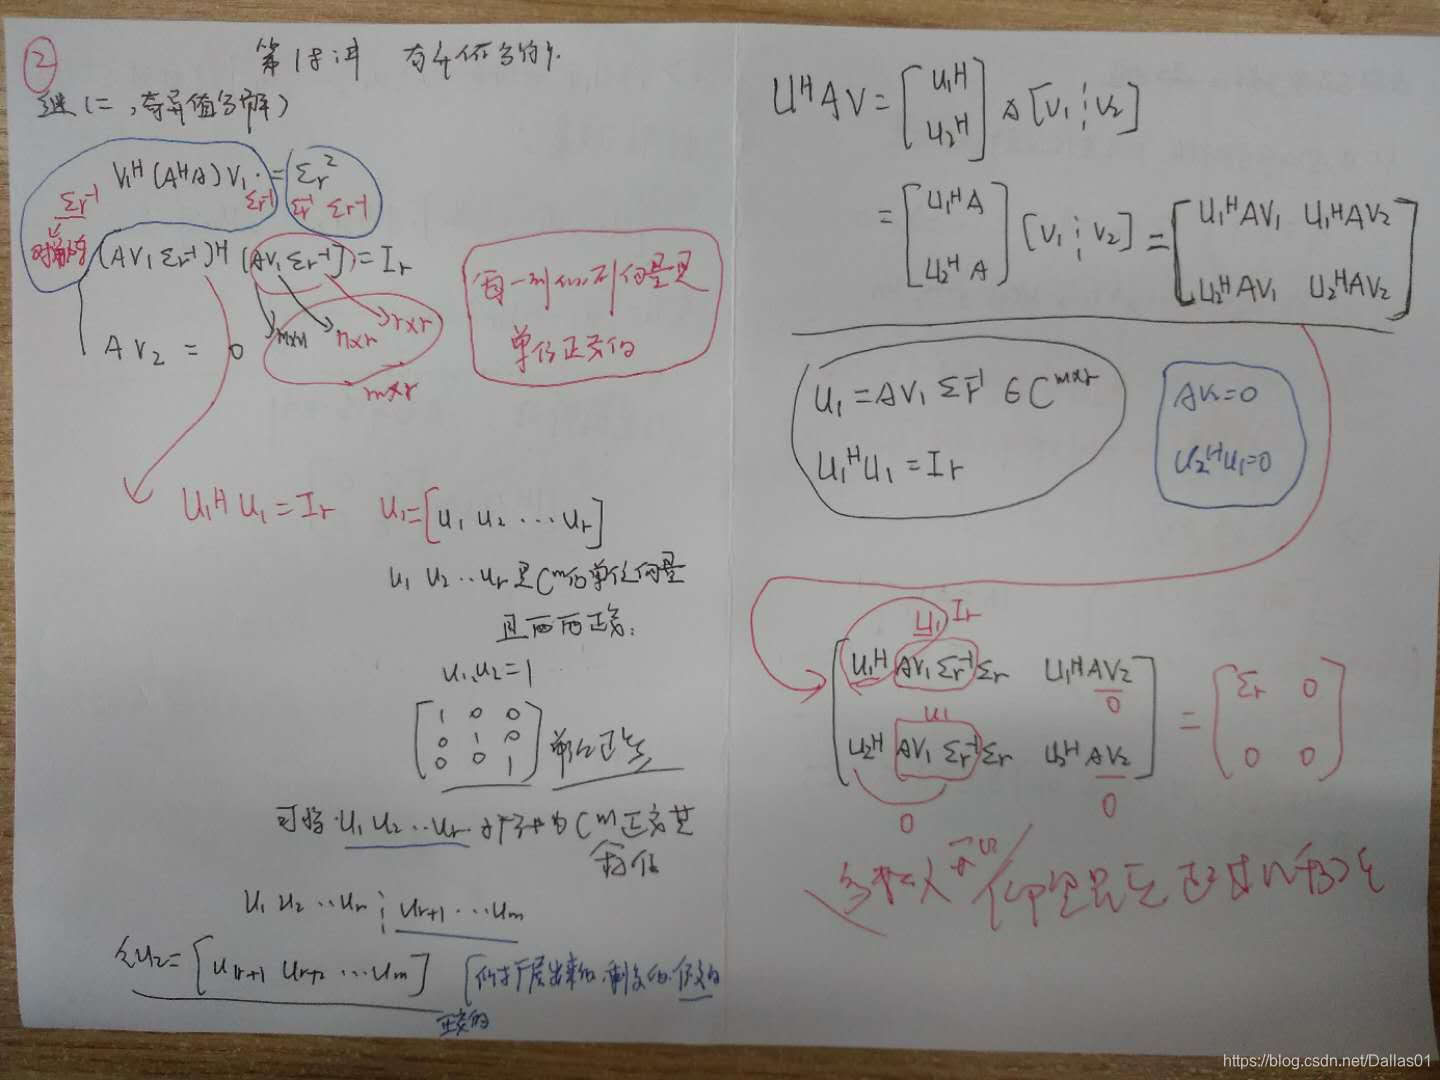 ②
第18讲 奇异值分解
继(二,奇异值分解)
V₁ᴴ(AᴴA)V₁ = Σr²
Σr⁻¹ Σr⁻¹ Σr⁻¹ Σr⁻¹
对角阵
(AV₁Σr⁻¹)ᴴ (AV₁Σr⁻¹) = Ir
m×n n×r r×r
m×r
AV₂ = 0
每一列的列向量是
单位正交的
U₁ᴴU₁ = Ir U₁=[u₁ u₂ … ur]
u₁ u₂ … ur 是Cᵐ的单位向量
且两两正交:
u₁,u₂=1
[1 0 0
0 1 0
0 0 1] 单位正交
可将 u₁ u₂ … ur 扩展为Cᵐ正交基
u₁ u₂ … ur ⋮ ur+1 … um
U₂=[ur+1 ur+2 … um]
正交的
UᴴAV = [U₁ᴴ
U₂ᴴ] A [V₁ ⋮ V₂]
= [U₁ᴴA
U₂ᴴA] [V₁ ⋮ V₂] = [U₁ᴴAV₁ U₁ᴴAV₂
U₂ᴴAV₁ U₂ᴴAV₂]
U₁ = AV₁Σr⁻¹ ∈ Cᵐˣʳ
U₁ᴴU₁ = Ir
AV₂=0
U₂ᴴU₁=0
U₁ Ir
[U₁ᴴ AV₁Σr⁻¹Σr U₁ᴴAV₂
0
U₁
U₂ᴴ AV₁Σr⁻¹Σr U₂ᴴAV₂] = [Σr 0
0 0]
0 0
https://blog.csdn.net/Dallas01